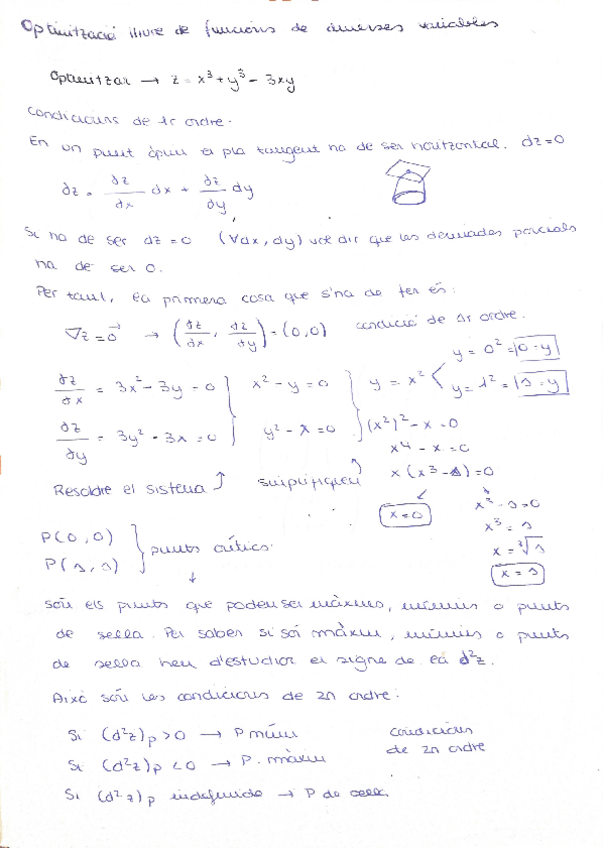 Optimització lliure de funcions de diverses variables
Optimitzar → z = x³ + y³ - 3xy
Condicions de 1r ordre.
En un punt òptim el pla tangent ha de ser horitzontal. dz = 0
dz = ∂z/∂x dx + ∂z/∂y dy
Si ha de ser dz = 0 (∀dx, dy) vol dir que les derivades parcials
ha de ser 0.
Per tant, la primera cosa que s'ha de fer és:
∇z = 0⃗ → (∂z/∂x, ∂z/∂y) = (0,0) condició de 1r ordre.
∂z/∂x = 3x² - 3y = 0 } x² - y = 0 } y = x² < y = 0² = 0 = y
y = 1² = 1 = y
∂z/∂y = 3y² - 3x = 0 } y² - x = 0 } (x²)² - x = 0
x⁴ - x = 0
Resoldre el sistema ↑ simplifiquem ↑ x(x³ - 1) = 0
x = 0
x³ - 1 = 0
x³ = 1
x = ³√1
x = 1
P(0,0)
P(1,1) } punts crítics
↓
són els punts que poden ser màxims, mínims o punts
de sella. Per saber si són màxim, mínims o punts
de sella heu d'estudiar el signe de la d²z.
Això són les condicions de 2n ordre:
Si (d²z)p > 0 → P mínim
Si (d²z)p < 0 → P. màxim
Si (d²z)p indefinido → P de sella.
condicions
de 2n ordre